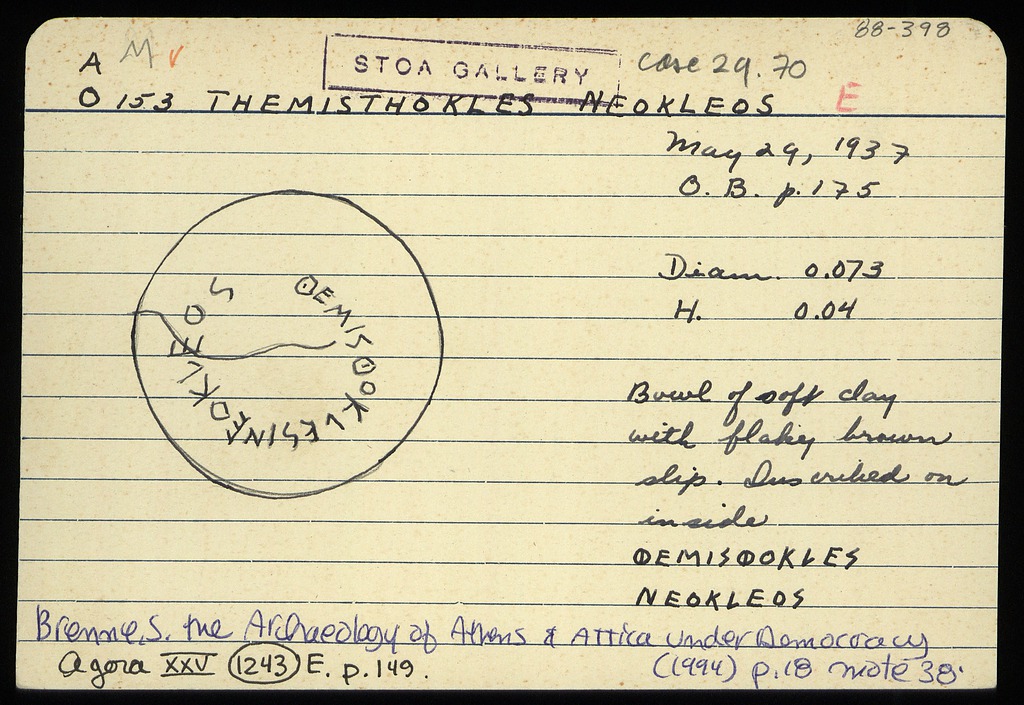 88-398
A M ✓ STOA GALLERY Case 29.70
O 153 THEMISTHOKLES NEOKLEOS E
May 29, 1937
O.B. p.175
Diam. 0.073
H. 0.04
ΘEMISΘOKLES NEOKLEOS
Bowl of soft clay
with flakey brown
slip. Inscribed on
inside
ΘEMISΘOKLES
NEOKLEOS
Brenne, S. the Archaeology of Athens & Attica under Democracy
(1994) p.18 note 38.
Agora XXV 1243 E. p.149.